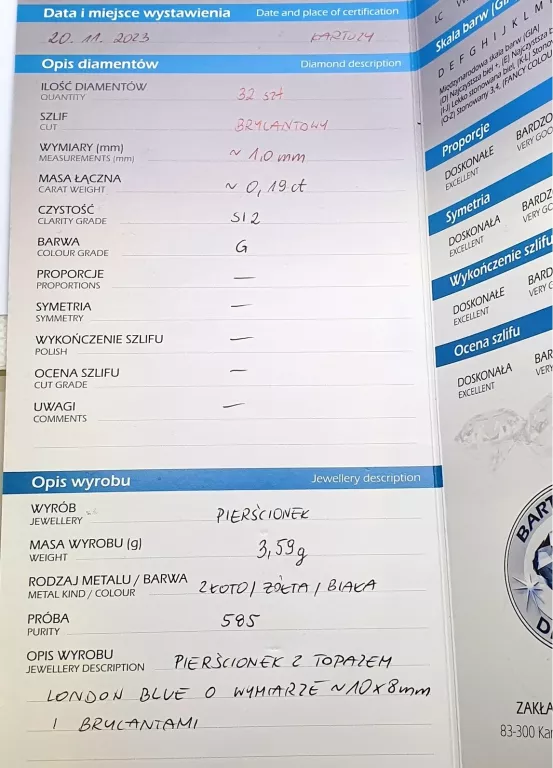 Data i miejsce wystawienia Date and place of certification
20. 11. 2023 KARTUZY
Opis diamentów Diamond description
ILOŚĆ DIAMENTÓW 32 szt
QUANTITY
SZLIF BRYLANTOWY
CUT
WYMIARY (mm) ~ 1,0 mm
MEASUREMENTS (mm)
MASA ŁĄCZNA ~ 0,19 ct
CARAT WEIGHT
CZYSTOŚĆ SI2
CLARITY GRADE
BARWA G
COLOUR GRADE
PROPORCJE —
PROPORTIONS
SYMETRIA —
SYMMETRY
WYKOŃCZENIE SZLIFU —
POLISH
OCENA SZLIFU —
CUT GRADE
UWAGI —
COMMENTS
Opis wyrobu Jewellery description
WYRÓB PIERŚCIONEK
JEWELLERY
MASA WYROBU (g) 3,59g
WEIGHT
RODZAJ METALU / BARWA ZŁOTO / ŻÓŁTA / BIAŁA
METAL KIND / COLOUR
PRÓBA 585
PURITY
OPIS WYROBU PIERŚCIONEK Z TOPAZEM
JEWELLERY DESCRIPTION
LONDON BLUE O WYMIARZE ~10x8mm
I BRYLANTAMI
LC
Skala barw (GI
D E F G H I J K L M
Międzynarodowa skala barw (GIA)
(D) Najczystsza biel +, (E) Najczystsza b
(I-J) Lekko stonowana biel, (K-L) Stonow
(O-Z) Stonowany 3,4, (FANCY COLOU
Proporcje
DOSKONAŁE BARDZO
EXCELLENT VERY GOO
Symetria
DOSKONAŁA BARDZ
EXCELLENT VERY GO
Wykończenie szlifu
DOSKONAŁE BARD
EXCELLENT VERY G
Ocena szlifu
DOSKONAŁA BAR
EXCELLENT VERY
BART
D
ZAKŁA
83-300 Kar